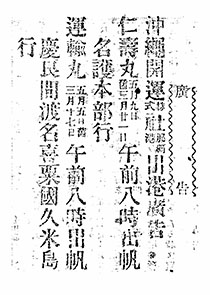 廣告
沖繩開運株式會社出港廣告
仁壽丸 五月九日 舊三月廿一日 午前八時出帆
名護本部行
運輸丸 五月五日 舊三月十七日 午前八時出帆
慶良間渡名喜粟國久米島
行